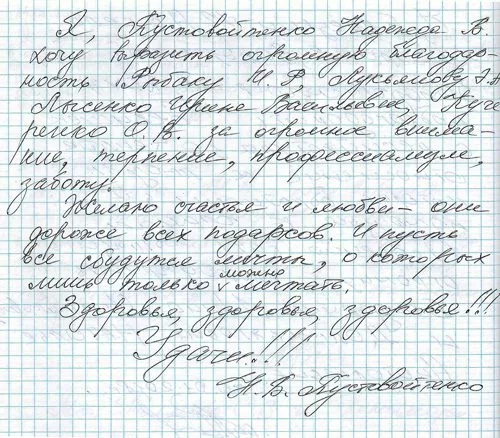 Я, Пустовойтенко Надежда В.
хочу выразить огромную благодар-
ность Рыбаку И. Р, Лукьянову Э.А
Лысенко Ирине Васильевне, Куче
ренко О. В. за огромное внима-
ние, терпение, профессианализм,
заботу.
Желаю счастья и любви - они
дороже всех подарков. И пусть
все сбудутся мечты, о которых
лишь только можно мечтать.
Здоровья, здоровья, здоровья!!!
Удачи!!!
Н. В. Пустовойтенко